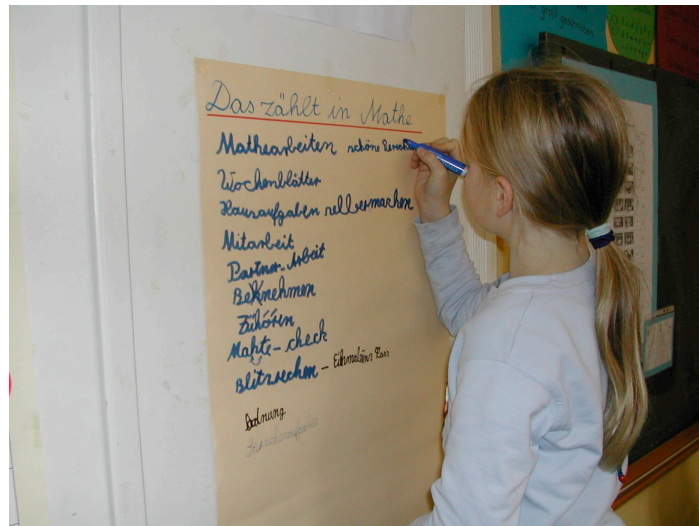 Das zählt in Mathe
Mathearbeiten schöne
Wochenblätter
Hausaufgaben selbermachen
Mitarbeit
Partner-Arbeit
Benehmen
Zuhören
Mahte-check
Blitzrechen - Einmaleins Pass
Ordnung
groß geschrieben